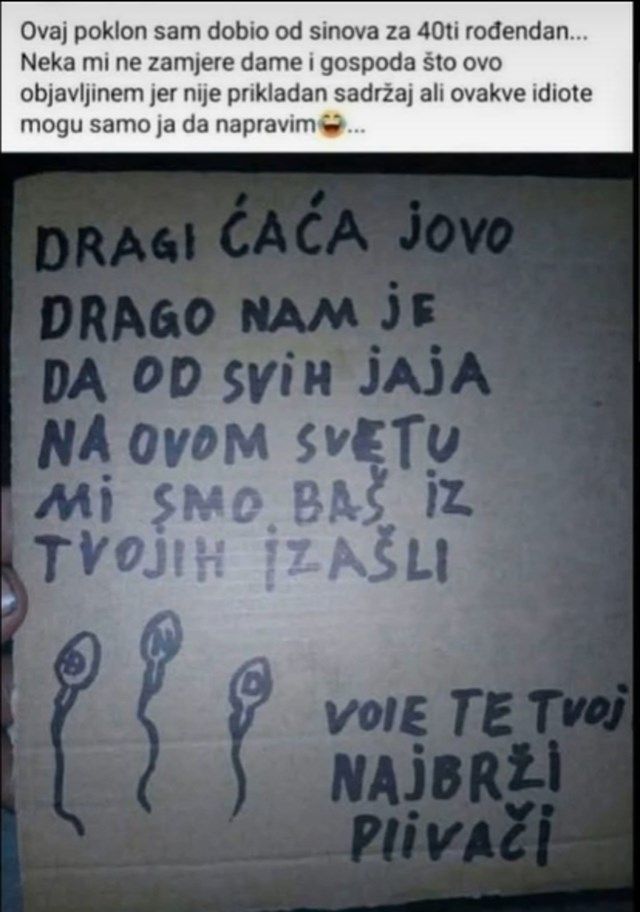 Ovaj poklon sam dobio od sinova za 40ti rođendan...
Neka mi ne zamjere dame i gospoda što ovo
objavljinem jer nije prikladan sadržaj ali ovakve idiote
mogu samo ja da napravim😅...
DRAGI ĆAĆA JOVO
DRAGO NAM JE
DA OD SVIH JAJA
NA OVOM SVETU
MI SMO BAŠ IZ
TVOJIH IZAŠLI
N
D
VOlE TE TVOJ
NAJBRŽI
PlIVAČI